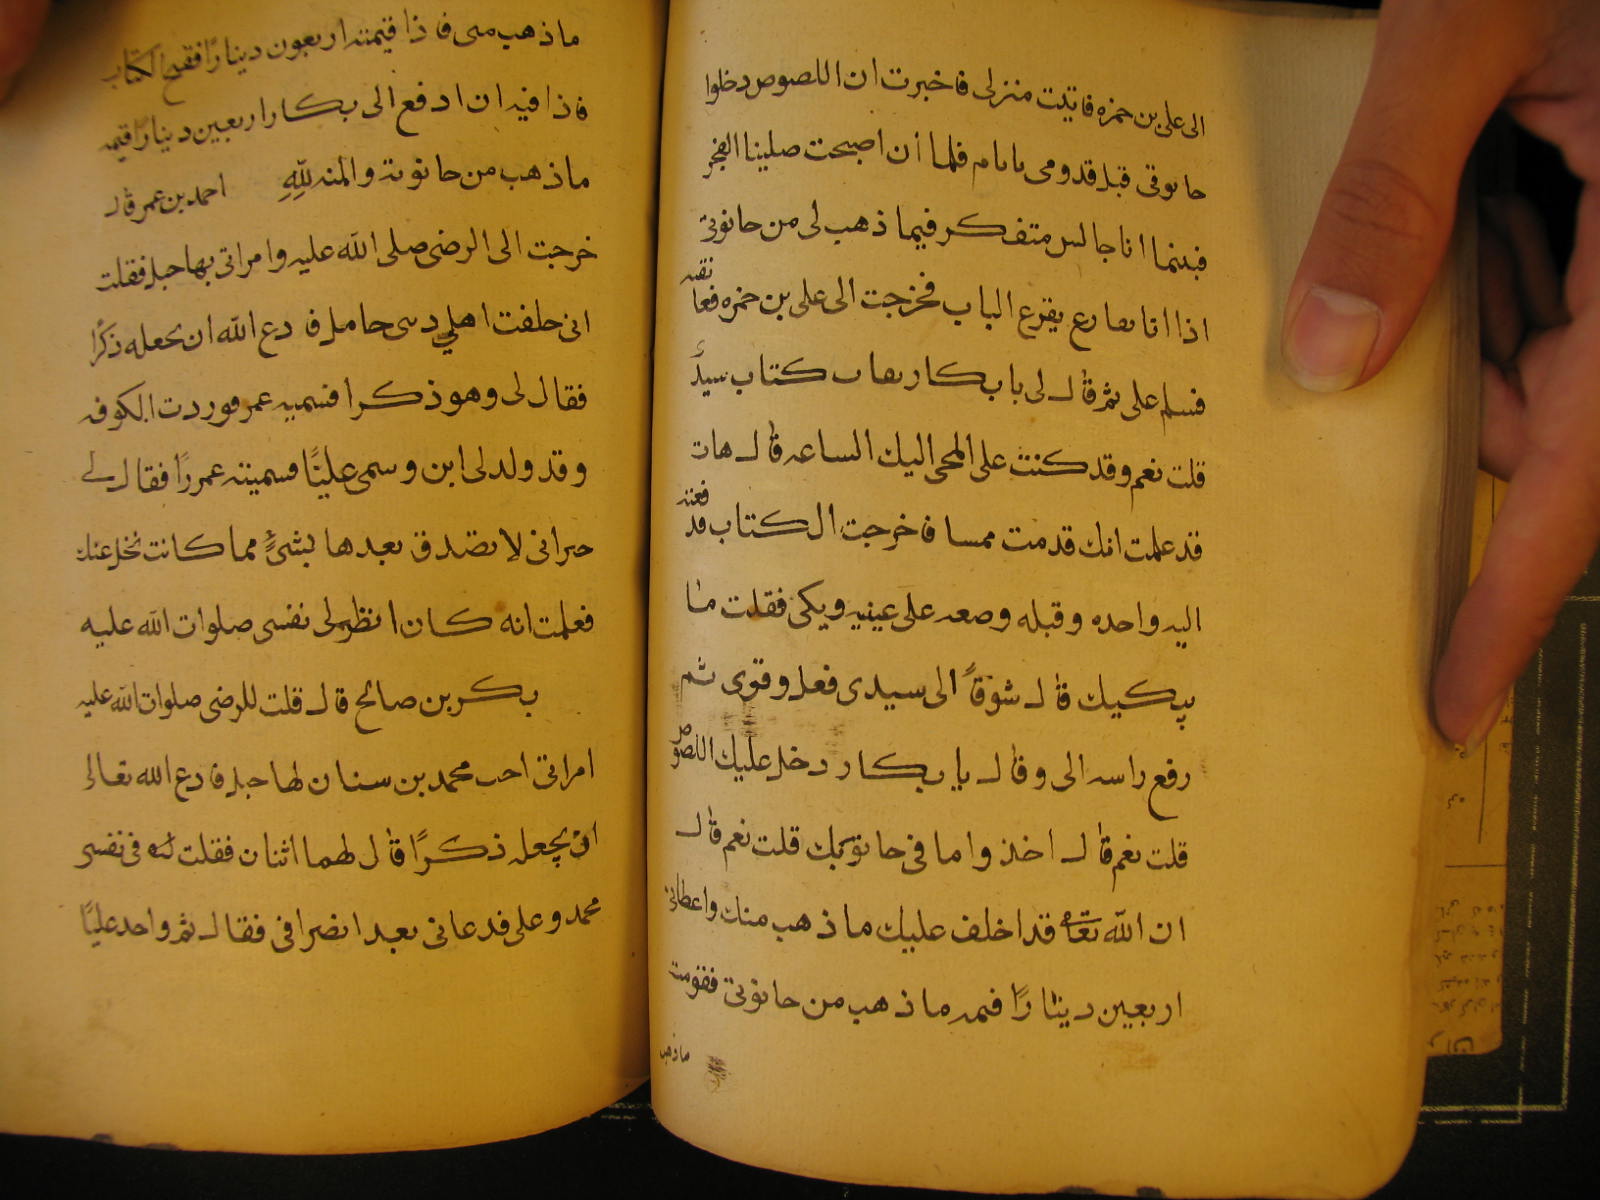 الى على بن حمزه فاتيت منزلى فاخبرت ان اللصوص دخلوا
حانوتى قبل قدومى بايام فلما أن اصبحت صلينا الفجر
فبينما انا جالس متفكر فيما ذهب لى من حانوتى
اذا انا بقارع يقرع الباب فخرجت الى على بن حمزه فعانقته
فسلم على ثم قال لى يا بكار هات كتاب سيدى
قلت نعم وقد كنت على المجى اليك الساعه قال هات
قد علمت انك قدمت ممسا فاخرجت الكتاب فدفعته
اليه واحده وقبله وضعه على عينيه ويكى فقلت ما
يبكيك قال شوقاً الى سيدى فعل وقوى ثم
رفع راسه الى وقال يا بكار دخل عليك اللصوص
قلت نعم قال اخذوا ما فى حانوتك قلت نعم قال
ان الله تعالى قد اخلف عليك ما ذهب منك واعطانى
اربعين دينارًا قيمه ما ذهب من حانوتى فقومت
ما ذهب
ما ذهب منى فاذا قيمته اربعون دينارًا ففتح الكتاب
فاذا فيه ان ادفع الى بكار اربعين دينارًا قيمه
ما ذهب من حانوته والمنه لِلّهِ احمد بن عمر قال
خرجت الى الرضى صلى الله عليه وامراتى بها حبل فقلت
انى خلفت اهلى وهى حامل فادع الله ان يجعله ذكرًا
فقال لى وهو ذكرا فسميه عمر فوردت الكوفه
وقد ولد لى ابن وسمى عليًا فسميته عمر رًا فقال لى
جيرانى لا نصدق بعدها بشىءٍ مما كانت نحل عنك
فعلمت انه كان انظر لى نفسى صلوات الله عليه
بكر بن صالح قال قلت للرضى صلوات الله عليه
امراتى اخت محمد بن سنان لها حبل فادع الله تعالى
ان يجعله ذكرًا قال لهما اثنان فقلت فى نفسى
محمد وعلى فدعانى بعد انصرافى فقال ثم واحد عليًا